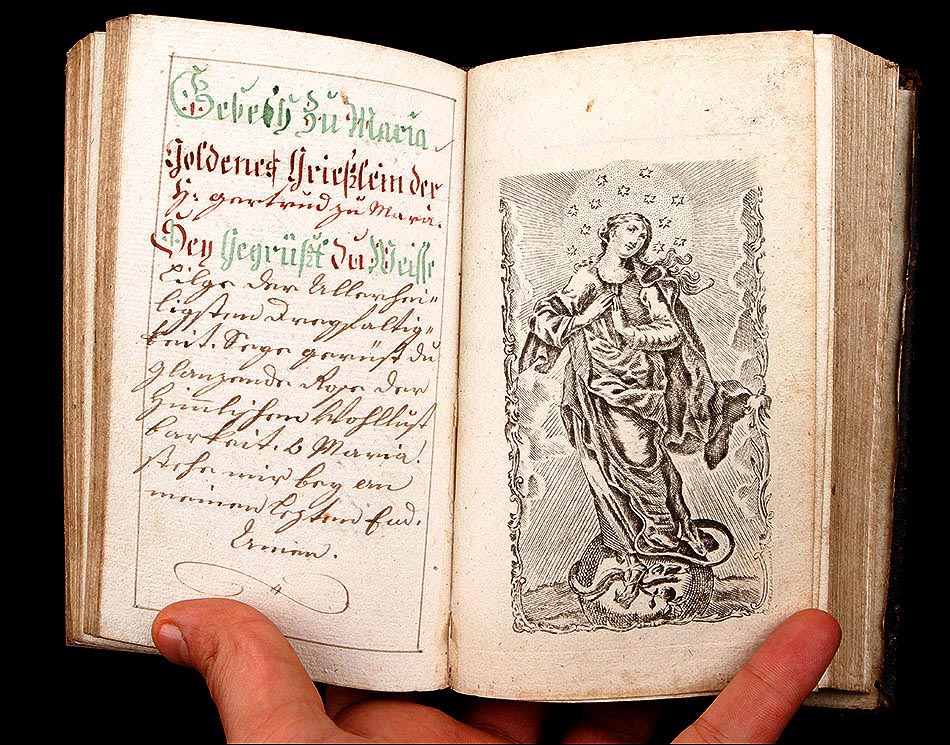 Gebeth zu Maria.
Goldenes Grießlein der
H: gertrud zu Maria.
Sey Gegrüßt du Weisse
Lilge der Allerhei=
ligsten Dreyfaltig=
keit. Seye gerüst du
glanzende Rose der
Himlischen Wohllust
barkeit. O Maria!
stehe mir bey an
meinen lezten End.
Amen.